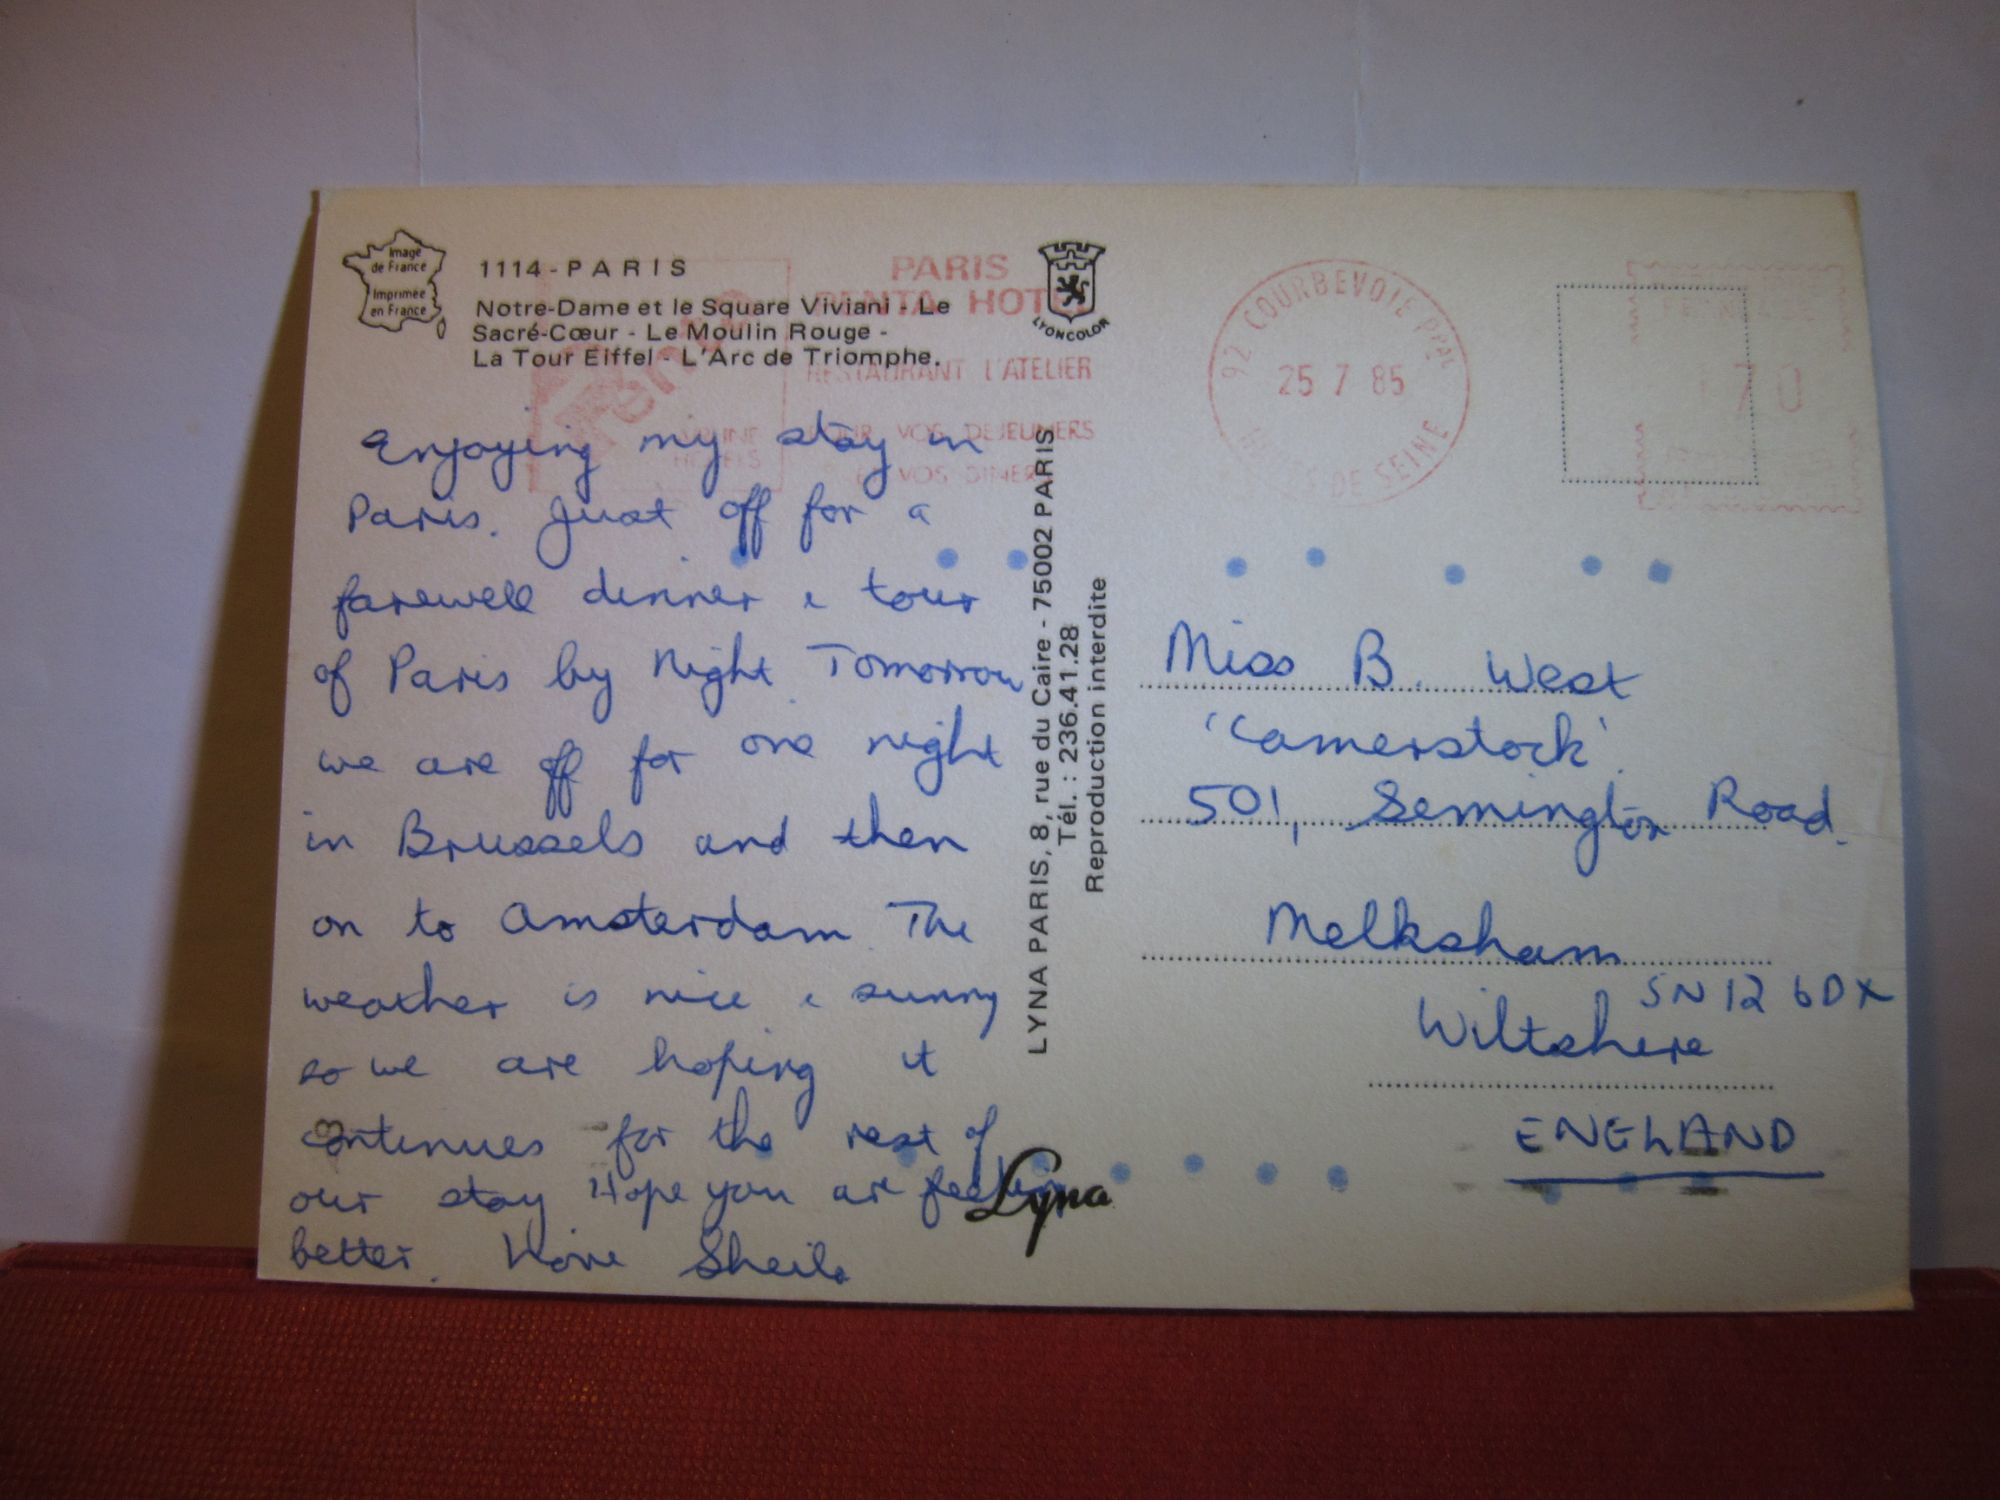 Image
de France
Imprimée
en France
1114 - PARIS
Notre-Dame et le Square Viviani - Le
Sacré-Cœur - Le Moulin Rouge -
La Tour Eiffel - L'Arc de Triomphe.
PARIS
PENTA HOTEL
RESTAURANT L'ATELIER
POUR VOS DEJEUNERS
VOS DINERS
Penta
HOTELS
LYONCOLOR
92 COURBEVOIE PPAL
25 7 85
DE SEINE
70
Enjoying my stay in
Paris. Just off for a
farewell dinner & tour
of Paris by Night. Tomorrow
we are off for one night
in Brussels and then
on to Amsterdam. The
weather is nice & sunny
so we are hoping it
continues for the rest of
our stay Hope you are feeling
better. Love Sheila
LYNA PARIS, 8, rue du Caire - 75002 PARIS
Tél. : 236.41.28
Reproduction interdite
Lyna
Miss B. West
'Camerstock'.
501, Semington Road.
Melksham
SN12 6DX
Wiltshire
ENGLAND